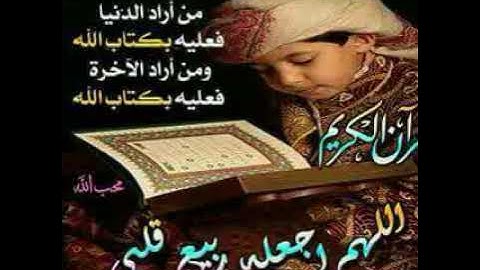 من أراد الدنيا
فعليه بكتاب الله
ومن أراد الآخرة
فعليه بكتاب الله
الكريم
محب الله
اللهم اجعله ربيع قلبي